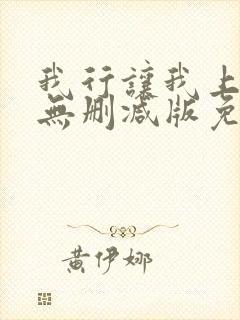 我行讓我上
無刪減版免
黃伊娜